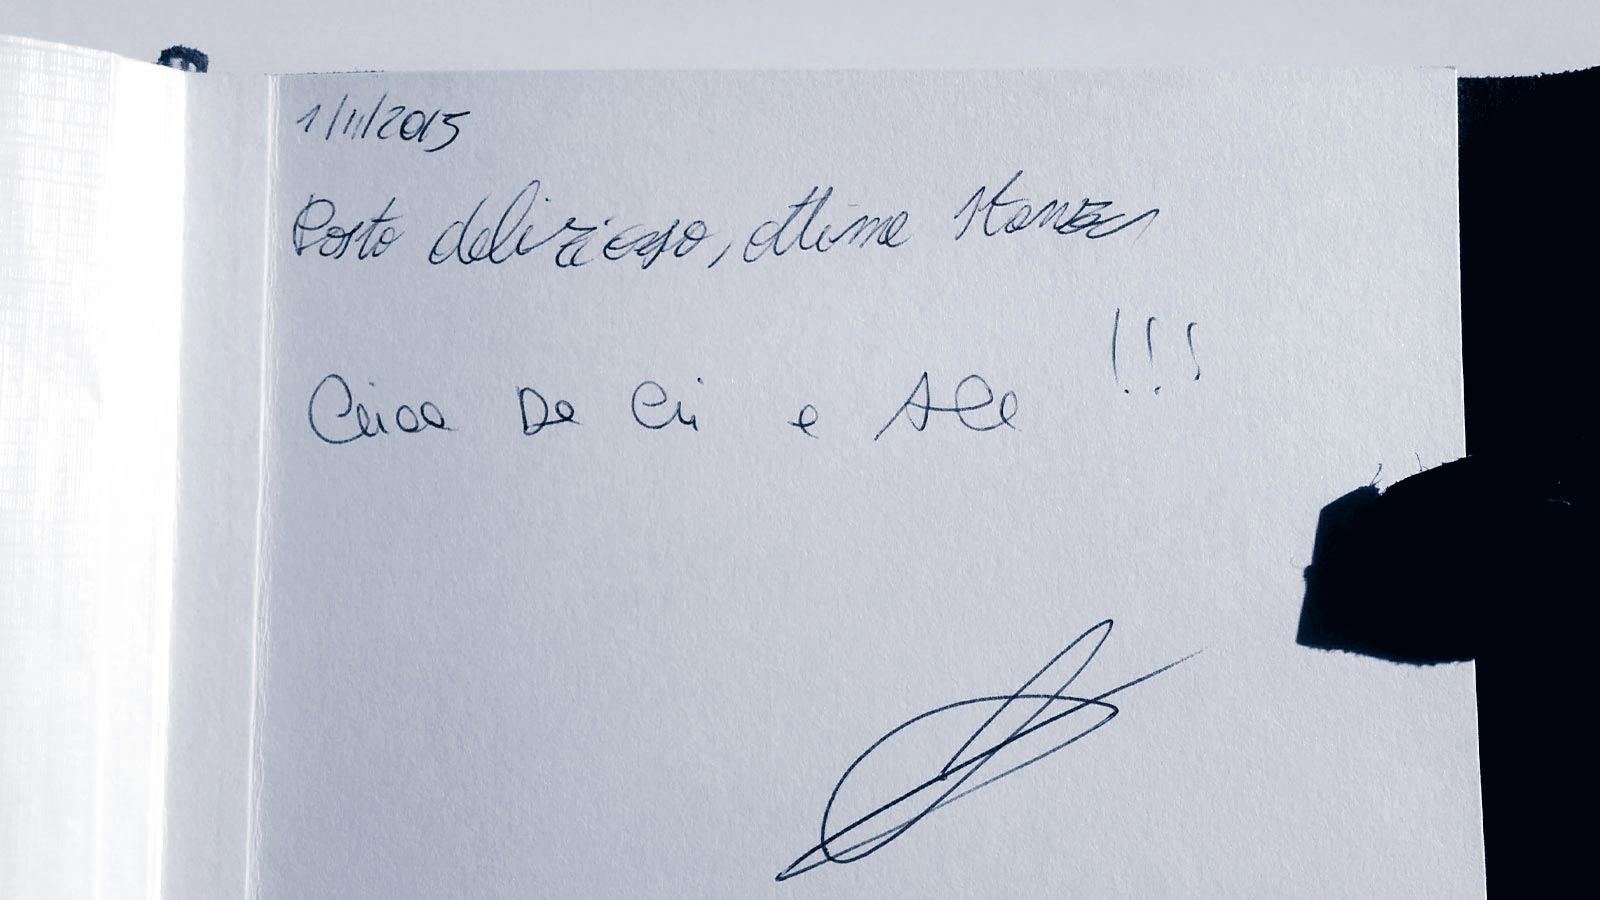 1/11/2015
Posto delizioso, ottima stanza
!!!
Ciao Da Cri e Ale